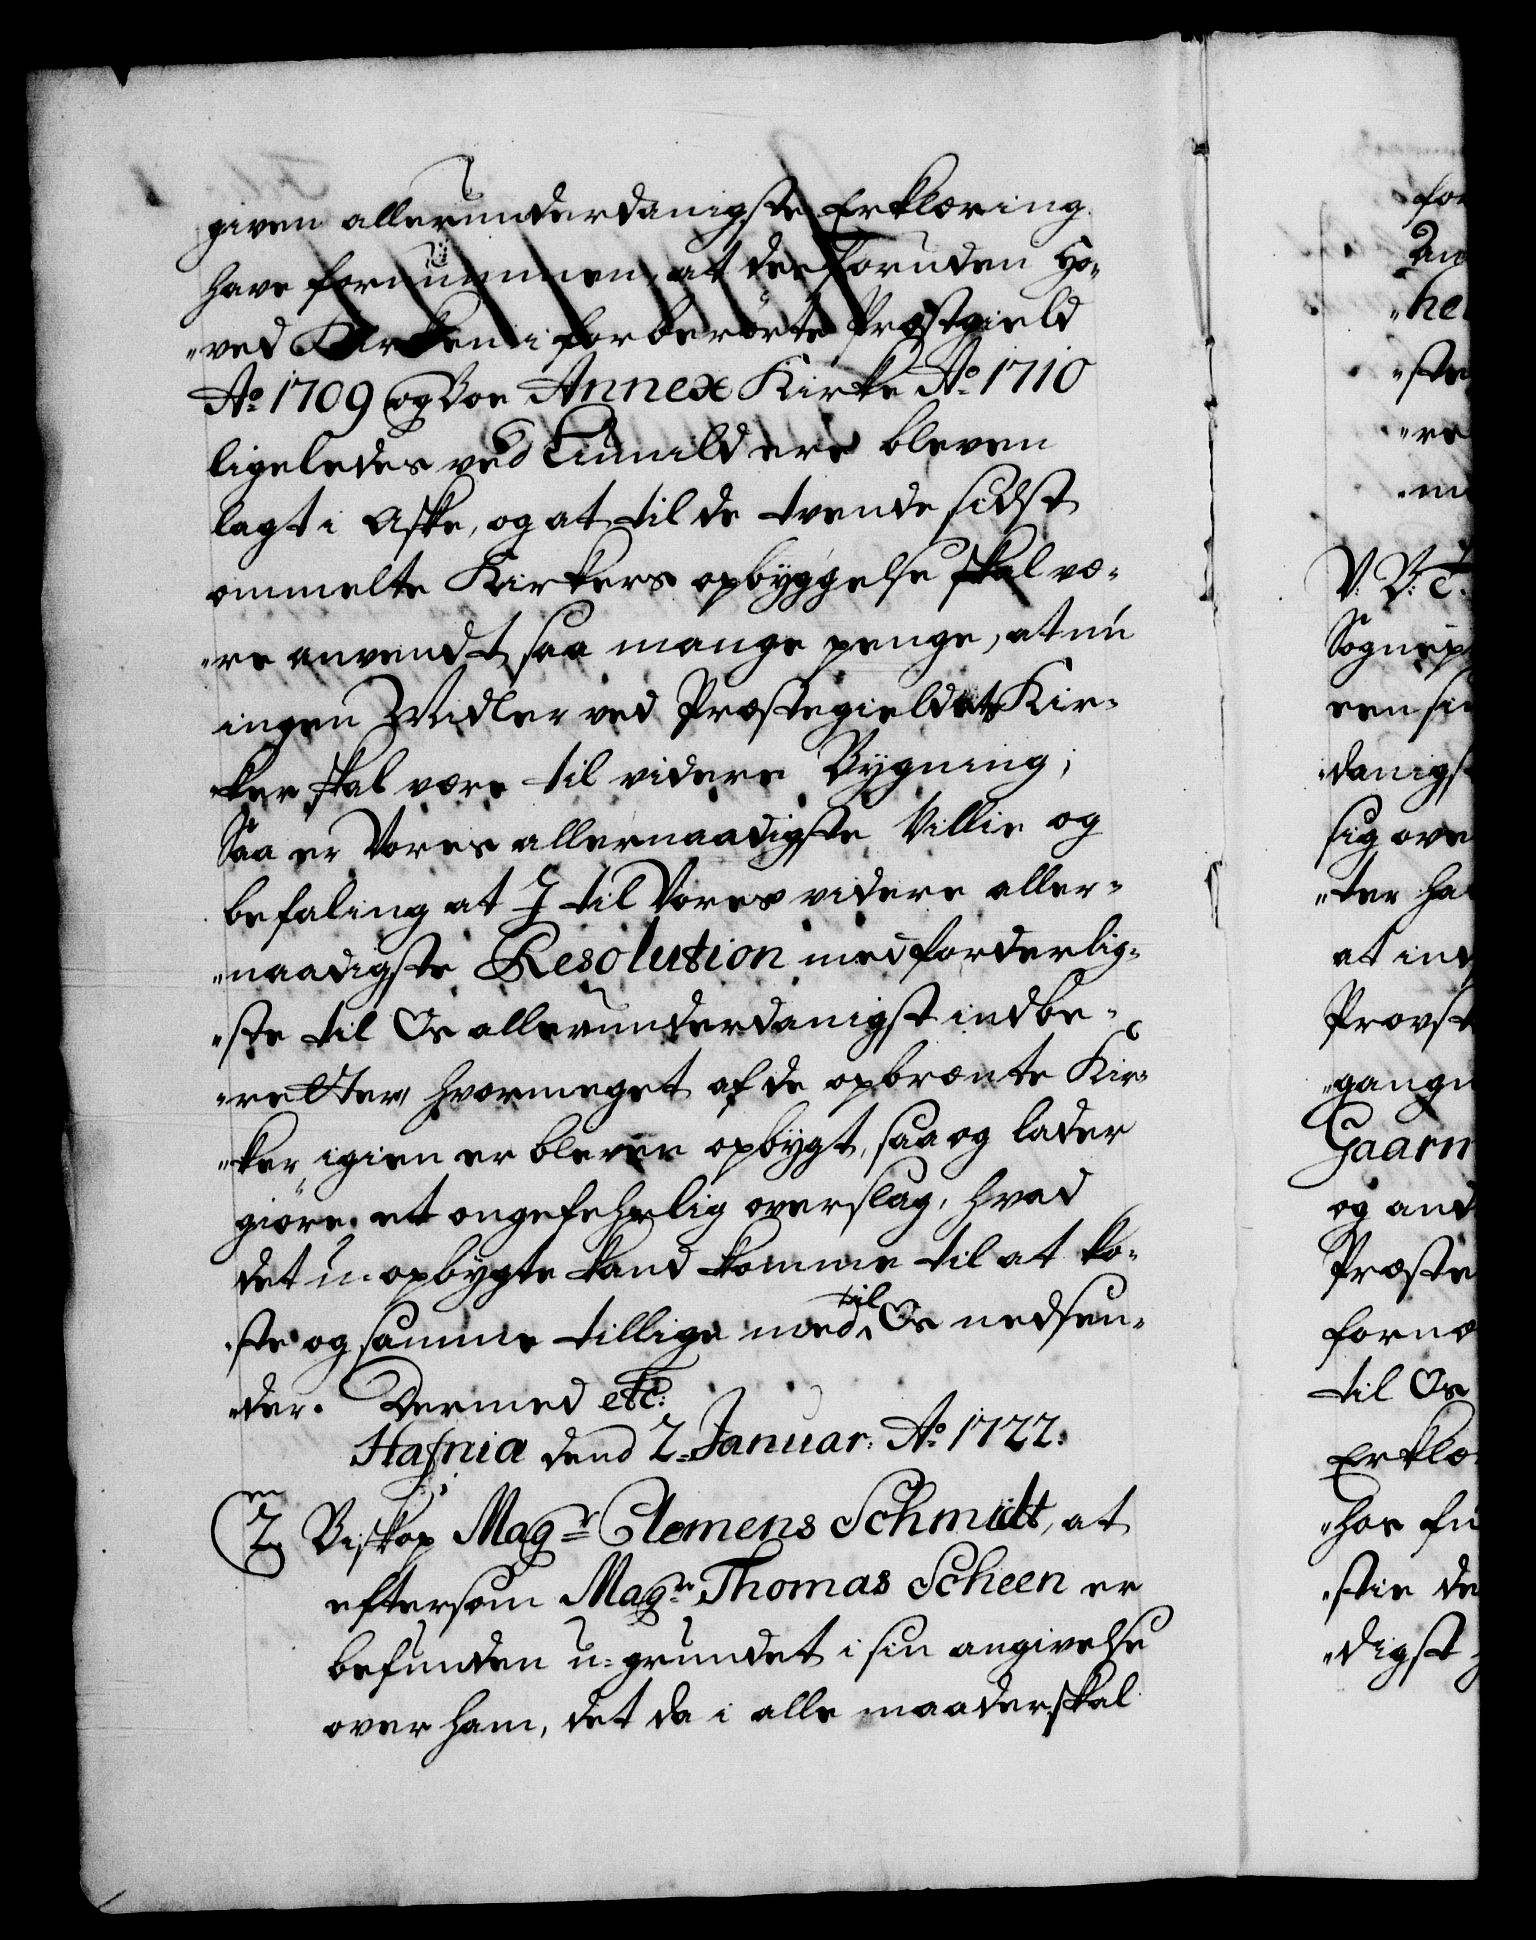 given allerunderdanigste Erklæring
have fornummen, at der foruden Ho-
"ved Kirken i forberørte Præstgield
Ao. 1709 og Boe Annex Kirke Ao. 1710
ligeledes ved ere bleven
lagt i Aske, og at til de tvende sidst
ommelte Kirkers opbyggelse skal væ-
"re anvendt saa mange penge, at nu
ingen Midler ved Præstegieldets Kir-
"ker skal være til videre Bygning;
Saa er Vores allernaadigste Villie og
befaling at I til Vores videre aller-
"naadigste Resolution med forderlig-
"ste til Os allerunderdanigst indbe-
"retter, hvormeget af de opbrænte Kir-
"ker igien er bleven opbygt, saa og lader
giøre et ongefehrlig overslag, hvad
det u-opbygte kand komme til at ko-
"ste og samme tillige med til Os nedsen-
"der. Dermed etc:
Hafniæ dend 2. Januar: Ao. 1722.
2. Biskop Magr. Clemens Schmidt, at
eftersom Magr. Thomas Scheen er
befunden u-grundet i sin angivelse
over ham, det da i alle maader skal
for
her
"ste
"re
V. V. T.
Sognep
een si
danigs
sig ove
"ter ha
at ind
Provst
"gang
Gaarn
og and
Præste
fornæ
til Os
Erklæ
"hos fu
"stie de
"digst